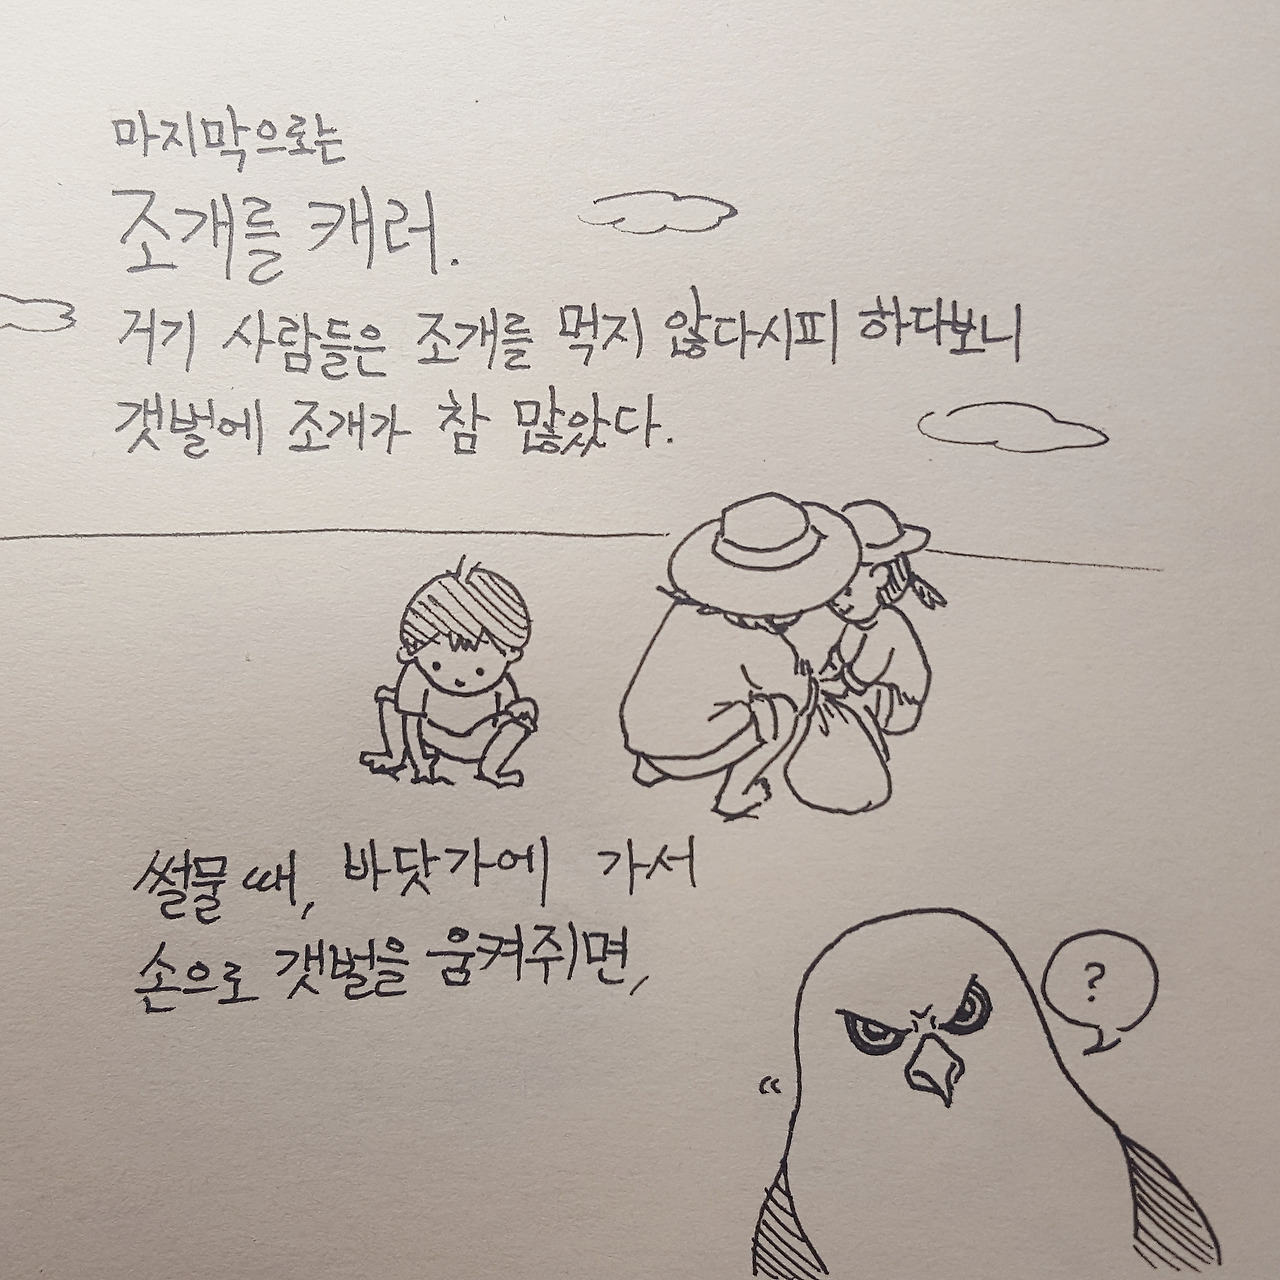 마지막으로는
조개를 캐러.
거기 사람들은 조개를 먹지 않다시피 하다보니
갯벌에 조개가 참 많았다.
썰물 때, 바닷가에 가서
손으로 갯벌을 움켜쥐면,
?